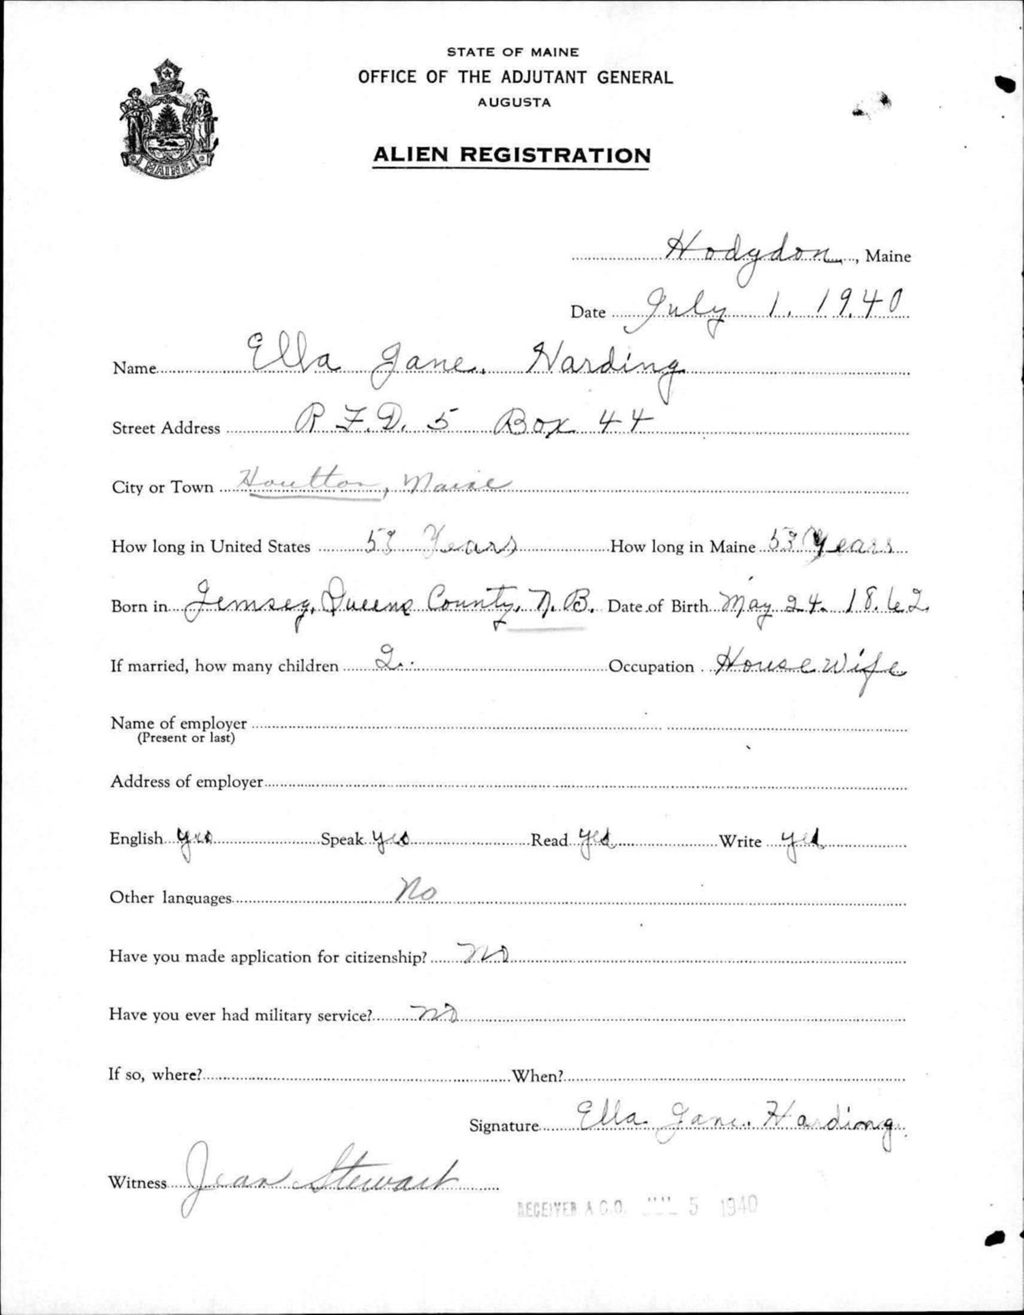 STATE OF MAINE
OFFICE OF THE ADJUTANT GENERAL
AUGUSTA
ALIEN REGISTRATION
MAINE
Hodgdon, Maine
Date July 1, 1940
Name Ella Jane Harding
Street Address R F.D. 5 Box 44
City or Town Houlton, Maine
How long in United States 53 Years How long in Maine 53 Years
Born in Jemseg, Queens County, N.B. Date of Birth May 24 1862
If married, how many children 2 Occupation House Wife
Name of employer
(Present or last)
Address of employer
English yes Speak yes Read yes Write yes
Other languages No
Have you made application for citizenship? No
Have you ever had military service? no
If so, where? When?
Signature Ella Jane Harding
Witness Jean Stewart
RECEIVED A.G.O. JUL 5 1940